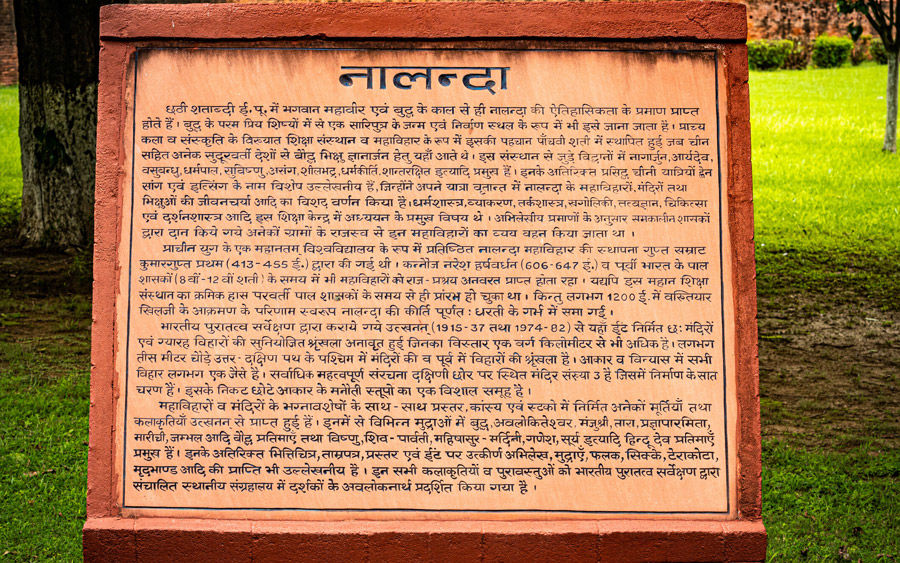 नालन्दा
छठी शताब्दी ई. पू. में भगवान महावीर एवं बुद्ध के काल से ही नालन्दा की ऐतिहासिकता के प्रमाण प्राप्त
होते हैं । बुद्ध के परम प्रिय शिष्यों में से एक सारिपुत्र के जन्म एवं निर्वाण स्थल के रूप में भी इसे जाना जाता है । प्राच्य
कला व संस्कृति के विख्यात शिक्षा संस्थान व महाविहार के रूप में इसकी पहचान पाँचवी शती में स्थापित हुई जब चीन
सहित अनेक सुदूरवर्ती देशों से बौद्ध भिक्षु ज्ञानार्जन हेतु यहाँ आते थे । इस संस्थान से जुड़े विद्वानों में नागार्जुन, आर्यदेव,
वसुबन्धु, धर्मपाल, सुविष्णु, असंग, शीलभद्र, धर्मकीर्ति, शान्तरक्षित इत्यादि प्रमुख हैं । इनके अतिरिक्त प्रसिद्ध चीनी यात्रियों ह्वेन
सांग एवं इत्सिंग के नाम विशेष उल्लेखनीय हैं, जिन्होंने अपने यात्रा वृतान्त में नालन्दा के महाविहारों, मंदिरों तथा
भिक्षुओं की जीवनचर्या आदि का विशद वर्णन किया है । धर्मशास्त्र, व्याकरण, तर्कशास्त्र, खगोलिकी, तत्वज्ञान, चिकित्सा
एवं दर्शनशास्त्र आदि इस शिक्षा केन्द्र में अध्ययन के प्रमुख विषय थे । अभिलेखीय प्रमाणों के अनुसार समकालीन शासकों
द्वारा दान किये गये अनेकों ग्रामों के राजस्व से इन महाविहारों का व्यय वहन किया जाता था ।
प्राचीन युग के एक महानतम् विश्वविद्यालय के रूप में प्रतिष्ठित नालन्दा महाविहार की स्थापना गुप्त सम्राट
कुमारगुप्त प्रथम (413-455 ई.) द्वारा की गई थी । कन्नौज नरेश हर्षवर्धन (606-647 ई.) व पूर्वी भारत के पाल
शासकों (8 वीं-12 वीं शती) के समय में भी महाविहारों को राज-प्रश्रय अनवरत प्राप्त होता रहा । यद्यपि इस महान शिक्षा
संस्थान का क्रमिक ह्रास परवर्ती पाल शासकों के समय से ही प्रारंभ हो चुका था । किन्तु लगभग 1200 ई. में बख्तियार
खिलजी के आक्रमण के परिणाम स्वरूप नालन्दा की कीर्ति पूर्णत : धरती के गर्भ में समा गई ।
भारतीय पुरातत्व सर्वेक्षण द्वारा कराये गये उत्खनन (1915-37 तथा 1974-82) से यहाँ ईंट निर्मित छः मंदिरों
एवं ग्यारह विहारों की सुनियोजित श्रृंखला अनावृत हुई जिनका विस्तार एक वर्ग किलोमीटर से भी अधिक है । लगभग
तीस मीटर चौड़े उत्तर-दक्षिण पथ के पश्चिम में मंदिरों की व पूर्व में विहारों की श्रृंखला है । आकार व विन्यास में सभी
विहार लगभग एक जैसे हैं । सर्वाधिक महत्वपूर्ण संरचना दक्षिणी छोर पर स्थित मंदिर संख्या 3 है जिसमें निर्माण के सात
चरण हैं । इसके निकट छोटे आकार के मनौती स्तूपो का एक विशाल समूह है ।
महाविहारों व मंदिरों के भग्नावशेषों के साथ-साथ प्रस्तर, कांस्य एवं स्टको में निर्मित अनेकों मूर्तियाँ तथा
कलाकृतियाँ उत्खनन से प्राप्त हुई हैं । इनमें से विभिन्न मुद्राओं में बुद्ध, अवलोकितेश्वर, मंजुश्री, तारा, प्रज्ञापारमिता,
मारीची, जम्भल आदि बौद्ध प्रतिमाएँ तथा विष्णु, शिव-पार्वती, महिषासुर-मर्दिनी, गणेश, सूर्य इत्यादि हिन्दू देव प्रतिमाएँ
प्रमुख हैं । इनके अतिरिक्त भित्तिचित्र, ताम्रपत्र, प्रस्तर एवं ईंट पर उत्कीर्ण अभिलेख, मुद्राएँ, फलक, सिक्के, टेराकोटा,
मृदभाण्ड आदि की प्राप्ति भी उल्लेखनीय है । इन सभी कलाकृतियों व पुरावस्तुओं को भारतीय पुरातत्व सर्वेक्षण द्वारा
संचालित स्थानीय संग्रहालय में दर्शकों के अवलोकनार्थ प्रदर्शित किया गया है ।